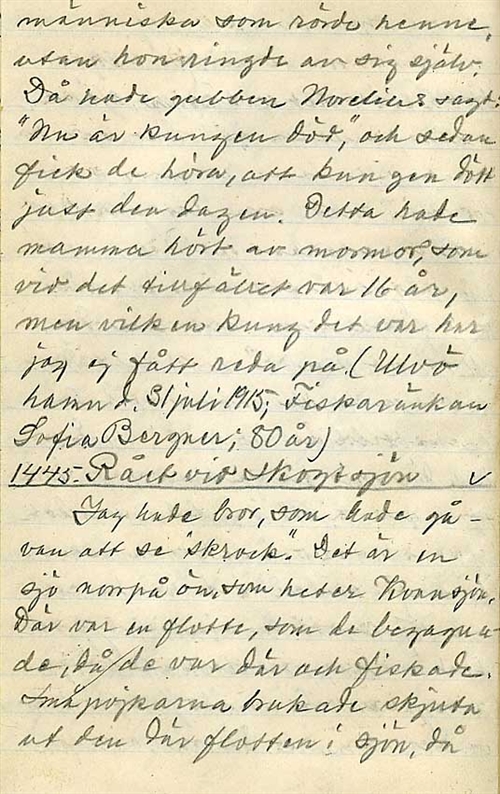 människa som rörde henne,
utan hon ringde av sig själv.
Då hade gubben Norelius sagt:
"Nu är kungen död," och sedan
fick de höra, att kungen dött
just den dagen. Detta hade
mamma hört av mormor, som
vid det tillfället var 16 år,
men vilken kung det var har
jag ej fått reda på. (Ulvö
hamn d. 31 juli 1915; Fiskaränkan
Sofia Bergner; 80 år)
1445. Rået vid Skogtsjön ✓
Jag hade bror, som hade gå-
van att se "skrock". Det är en
sjö norrpå ön, som heter
Där var en flotte, som de begagna-
de, då de var där och fiskade.
Småpojkarna brukade skjuta
ut den där flotten i sjön, då